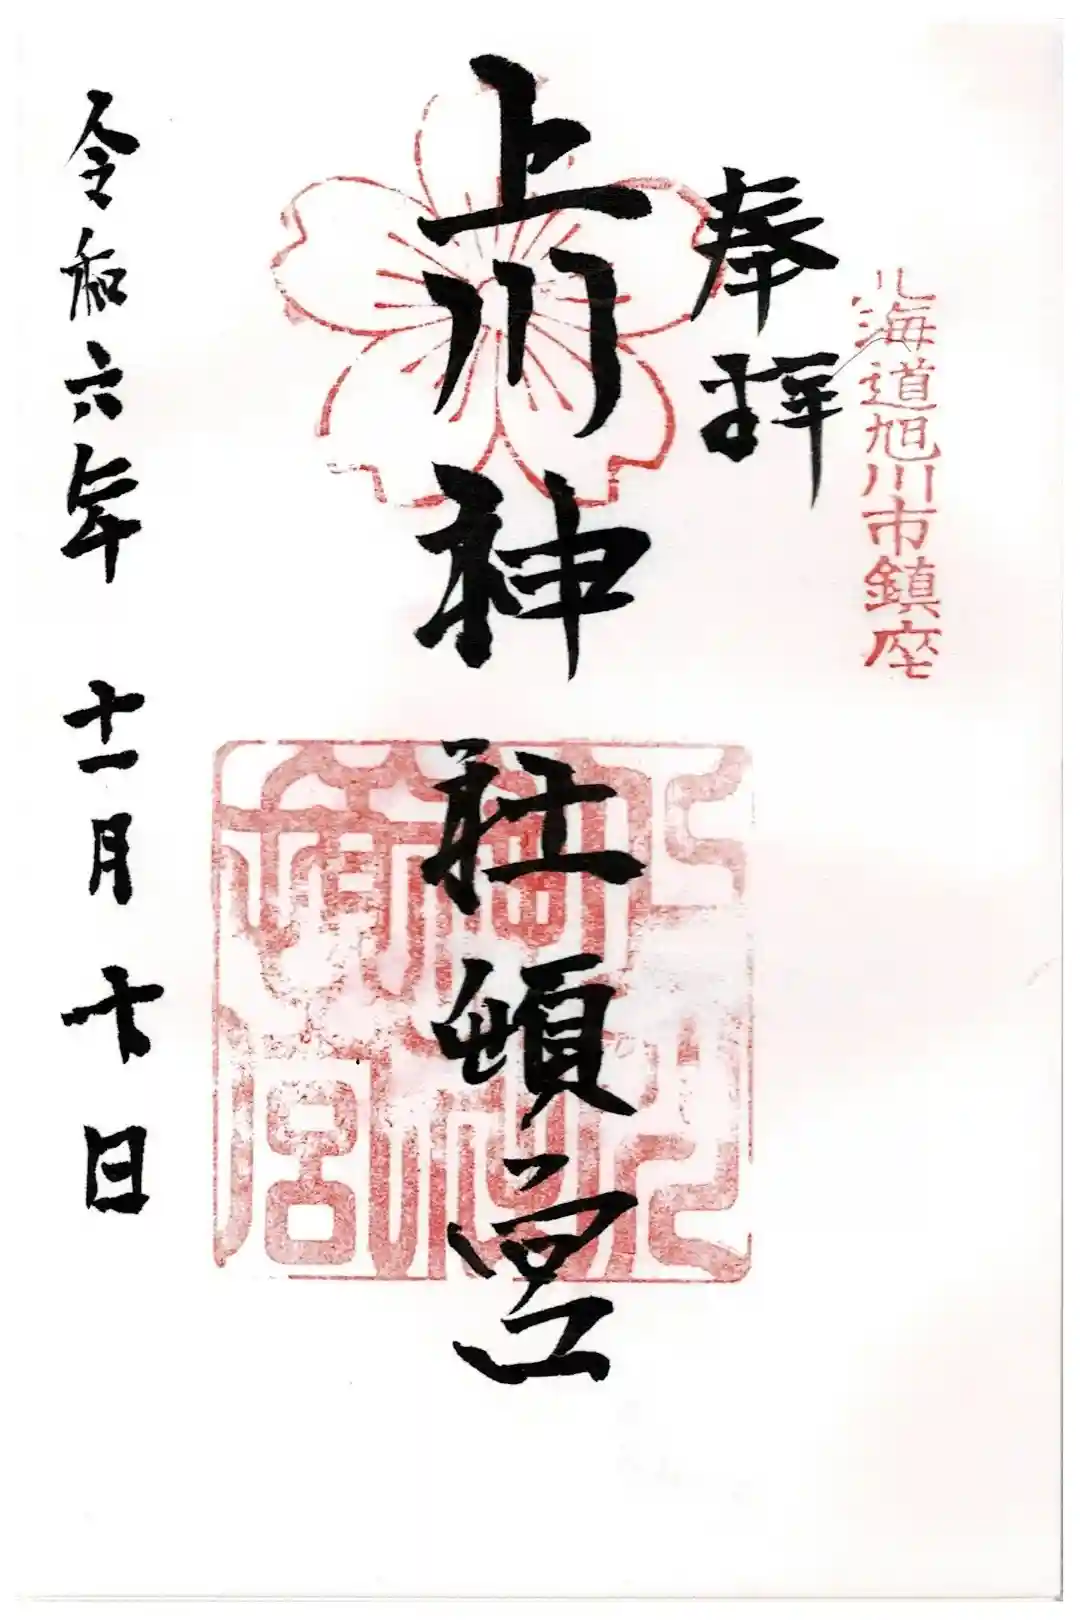 北海道旭川市鎮座
奉拝
上川神社頓宮
令和六年 十一月 十日